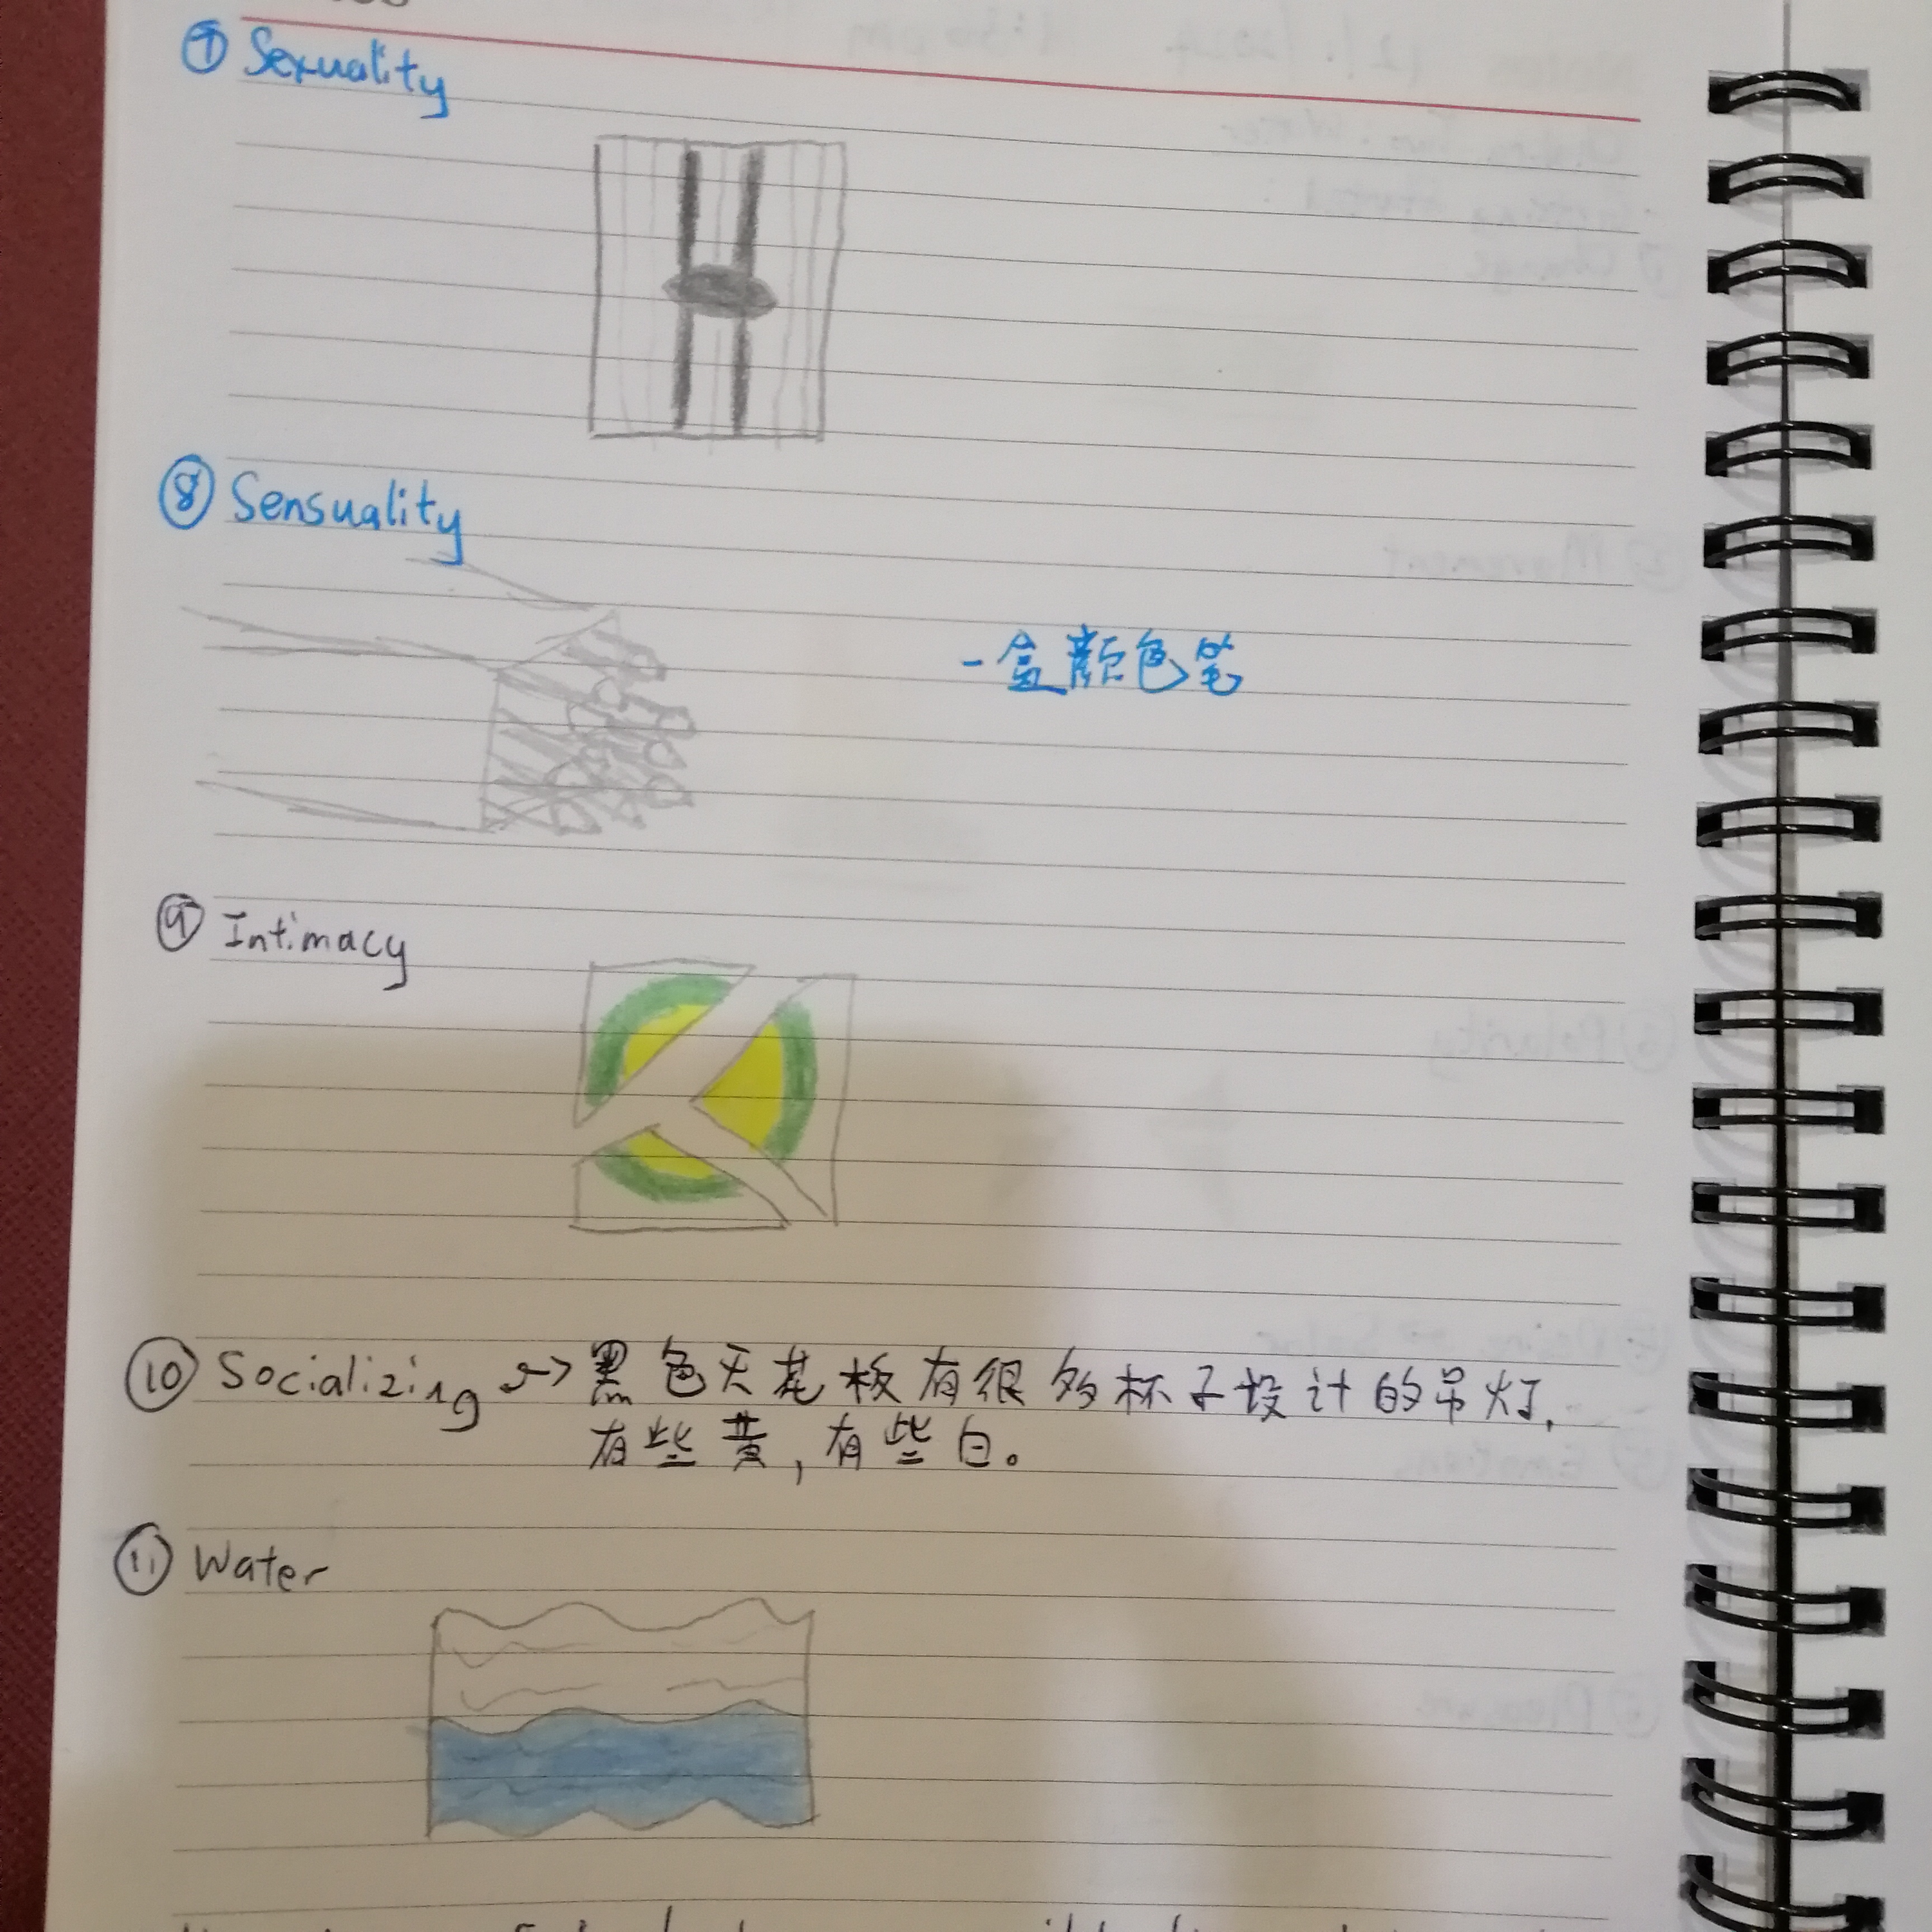 ⑦ Sexuality
⑧ Sensuality
一盒颜色笔
⑨ Intimacy
⑩ Socializing ↝ 黑色天花板有很多杯子设计的吊灯,
有些黄,有些白。
⑪ Water